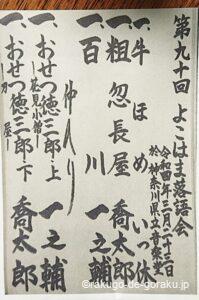 第九十回 よこはま落語会
令和四年三月二十二日
於 神奈川県立音楽堂
一、牛ほめ いっ休
一、粗忽長屋 喬太郎
一、百川 一之輔
仲入り
一、おせつ徳三郎・上 一之輔
―花見小僧―
一、おせつ徳三郎・下 喬太郎
―刀屋―
©rakugo-de-goraku.jp